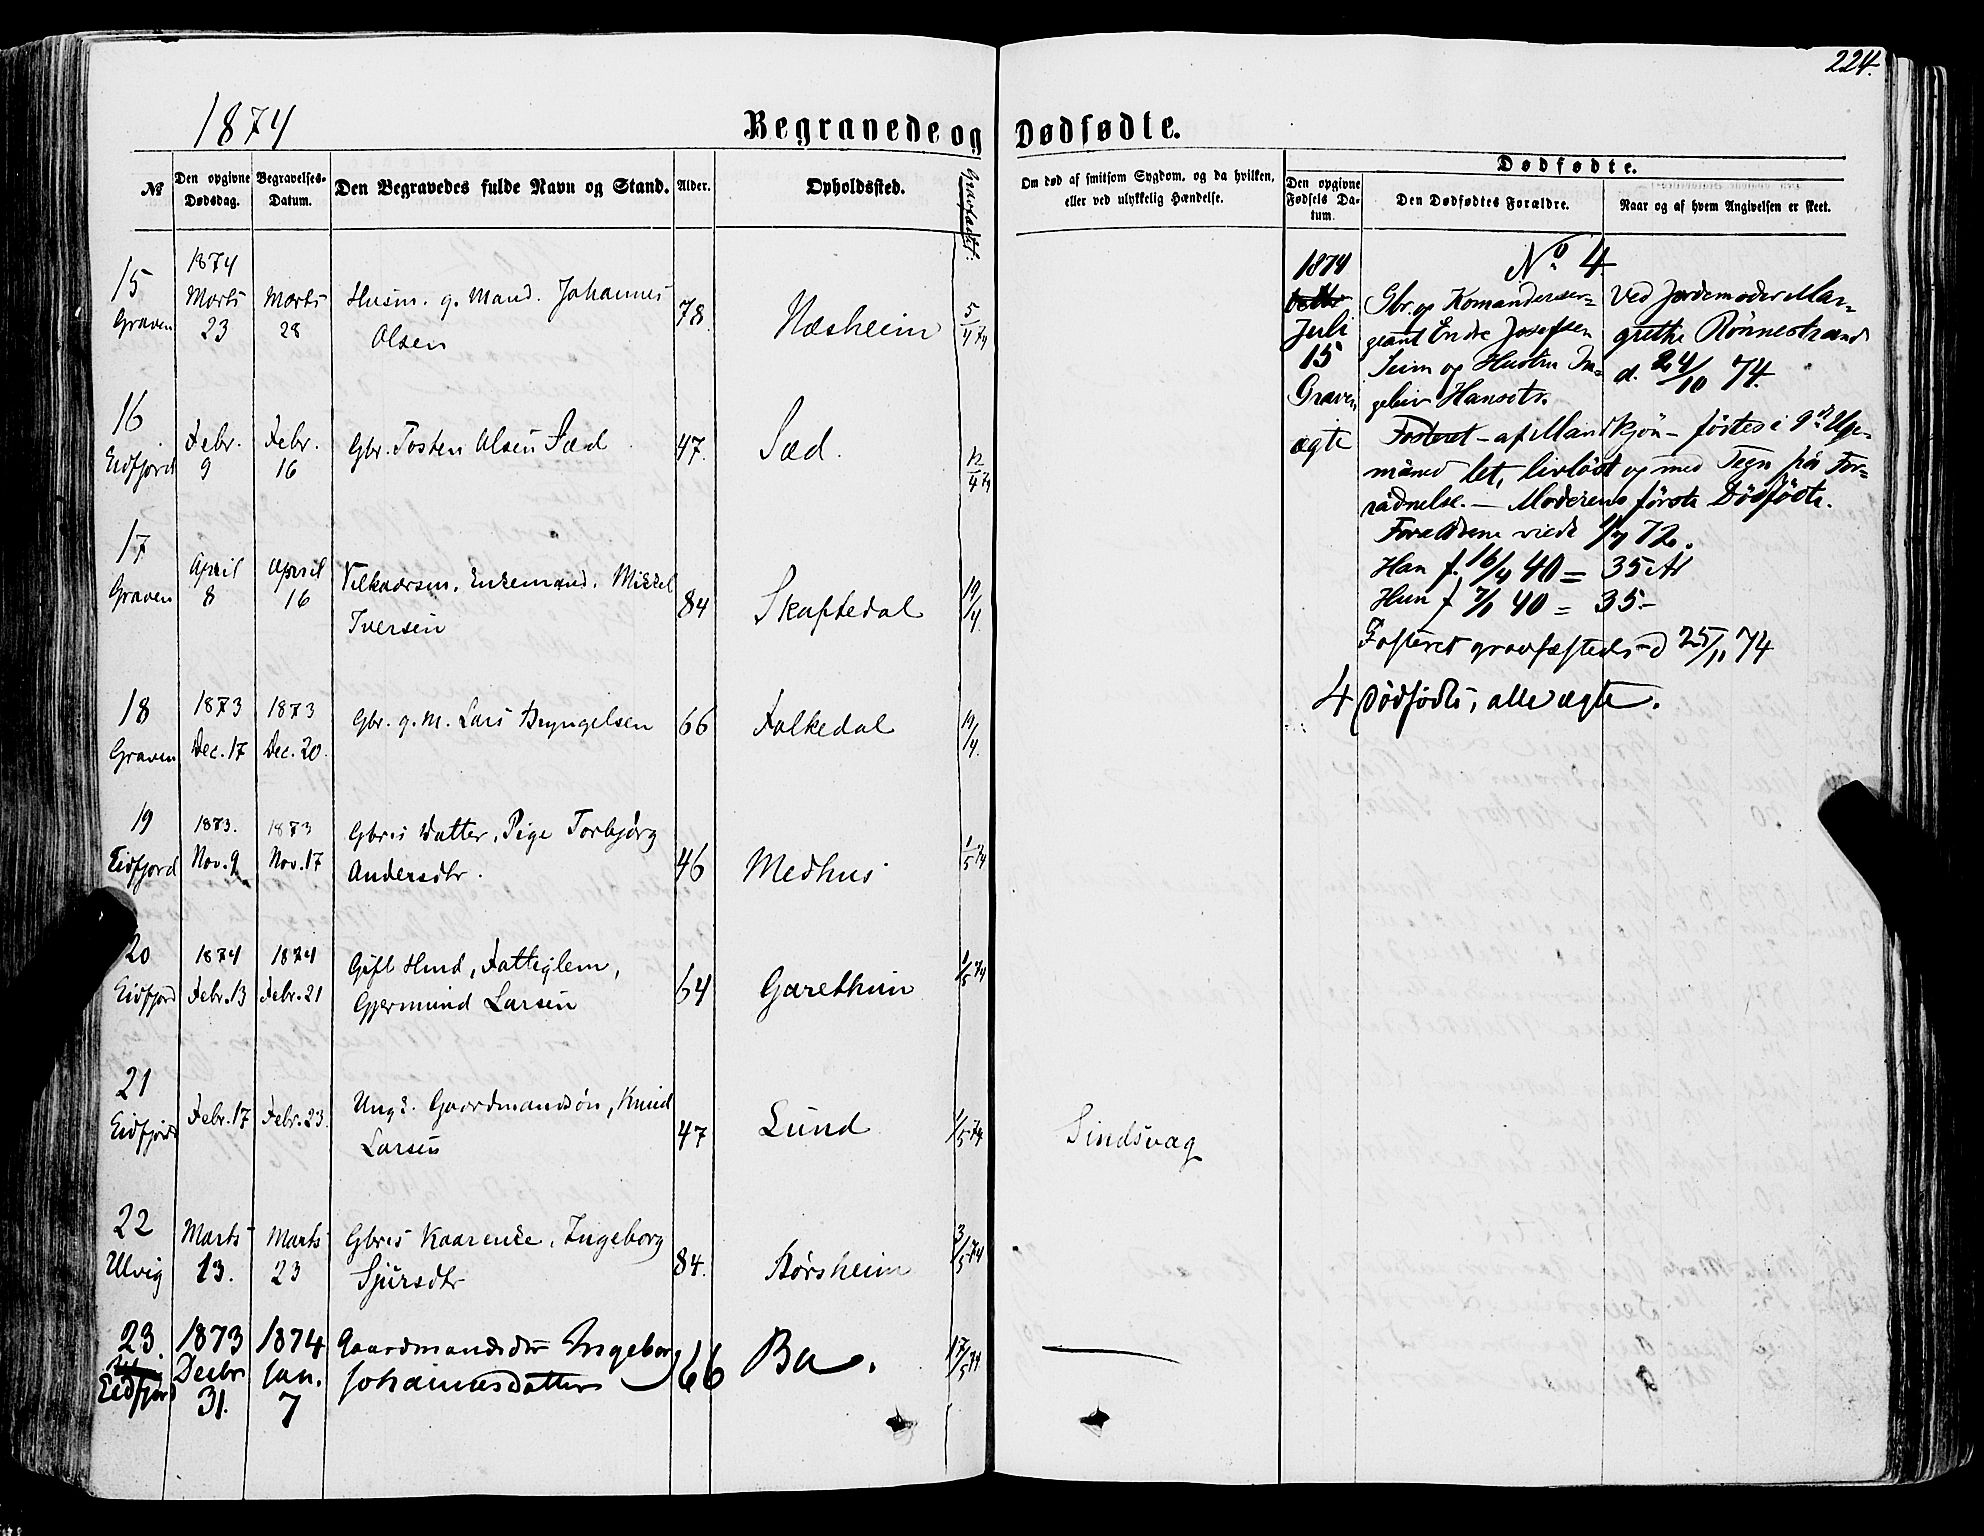 224.
1874
Begravede og Dødfødte.
№
Den opgivne Dødsdag.
Begravelses-Datum.
Den Begravedes fulde Navn og Stand.
Alder.
Opholdssted.
Gravfæstet:
Om død af smitsom Sygdom, og da hvilken,
eller ved ulykkelig Hændelse.
Dødfødte.
Den opgivne
Fødsels Da-
tum.
Den Dødfødtes Forældre.
Naar og af hvem Angivelsen er skeet.
15 Graven
1874 Marts 23
Marts 28
Husm. g. Mand. Johannes
Olsen
78.
Næsheim
5/4 74
16 Eidfjord
Febr. 9
Febr. 16
Gbr. Tosten Olsen Sæd
47.
Sæd.
12/4 74
17 Graven
April 8
April 16
Vilkaarsm. Enkemand. Mikkel
Iversen
84
Skaftedal
19/4.
18 Graven
1873 Dec. 17
1873 Dec. 20.
Gbr. g. M. Lars Bryngelsen
66
Falkedal
19/4.
19 Eidfjord
1873. Nov. 9
1873 Nov. 17
Gbres Datter, Pige Torbjørg
Andersdtr.
46
Medhus
1/5 74
20 Eidfjord
1874 Febr. 13
1874 Febr. 21
Gift Hmd, Fattiglem,
Gjermund Larsen
64
Garethun
1/5 74
21 Eidfjord
Febr. 17
Febr. 23.
Ungk. Gaardmandsøn, Knud
Larsen
47
Lund
1/5 74
Sindsvag
22 Ulvig
Marts 13.
Marts 23
Gbres Kaarenke, Ingeborg
Sjursdtr
84.
Børsheim
3/5 74
23. Eidfjord
1873 Decbr 31.
1874 Jan. 7
Gaardmandsdtr Ingeborg
Johannesdatter
66
Bu.
17/5 74
No 4
1874
Juli
15
Graven
ægte
Gbr. og Komandersер-
geant Endre Josefsen
Seim og Hustru In-
gebor Hansdtr.
Ved Jordemoder Mar-
grethe Rönnestrand
d. 24/10 74.
Fosteret - af Mandkjön - födtes i 9de Uge-
måned let, livlöst og med Tegn på For-
rådnelse. - Moderens förste Dödfödte.
Foreldrene viede 1/7 72.
Han f. 16/4 40 = 35 År
Hun f 7/1 40 = 35 -
Fosteret gravfæstedes d 25/11 74
4 Dödfödte, alle ægte.